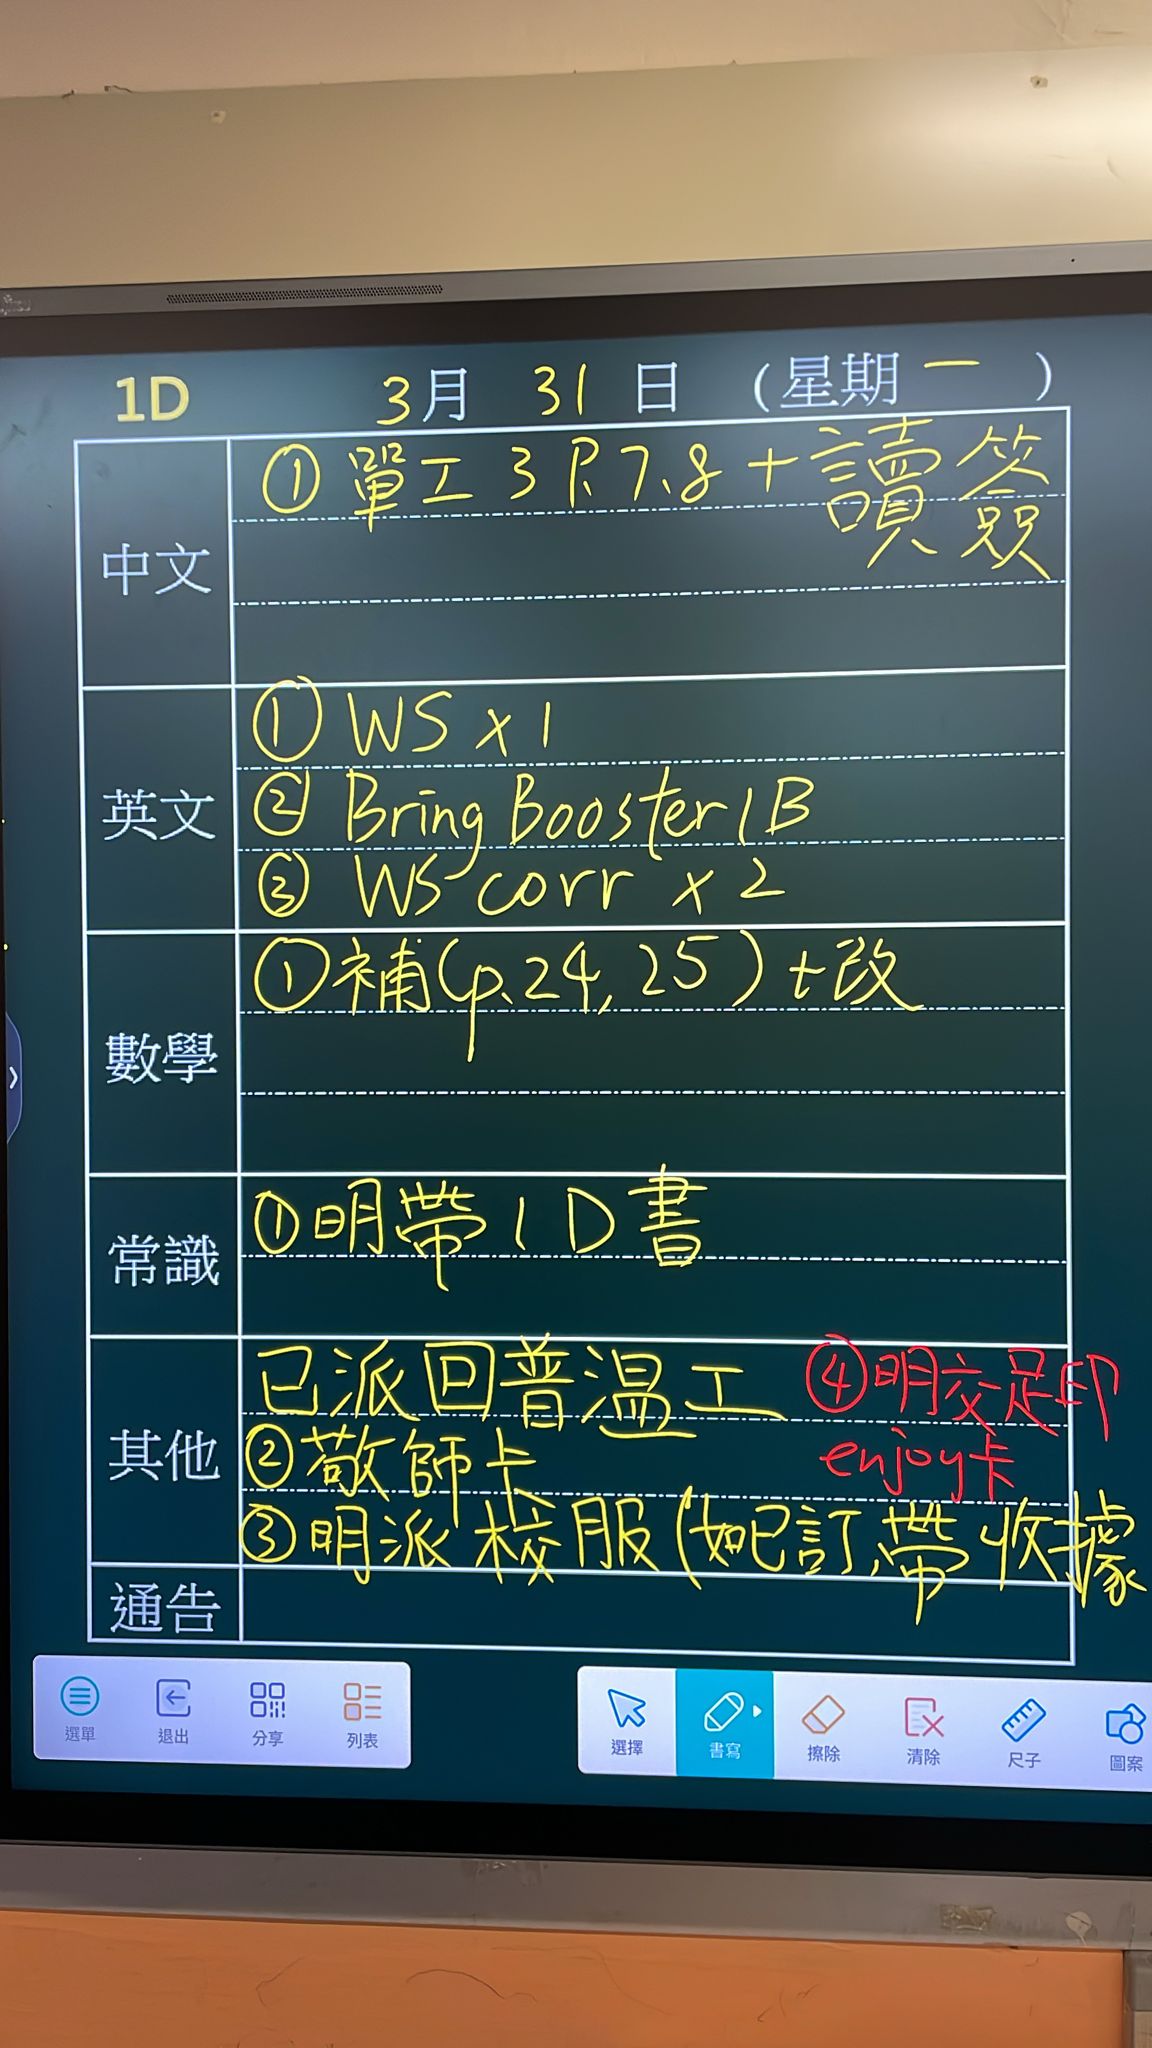 1D 3月 31 日 (星期一)
中文
① 單工3 P.7、8 + 讀簽
英文
① WS x 1
② Bring Booster 1B
③ WS corr x 2
數學
① 補(p.24, 25) + 改
常識
① 明帶 1D 書
其他
已派回普温工
② 敬師卡
③ 明派校服(如已訂,帶收據
④ 明交足印
enjoy卡
通告
選單 退出 分享 列表 選擇 書寫 擦除 清除 尺子 圖案